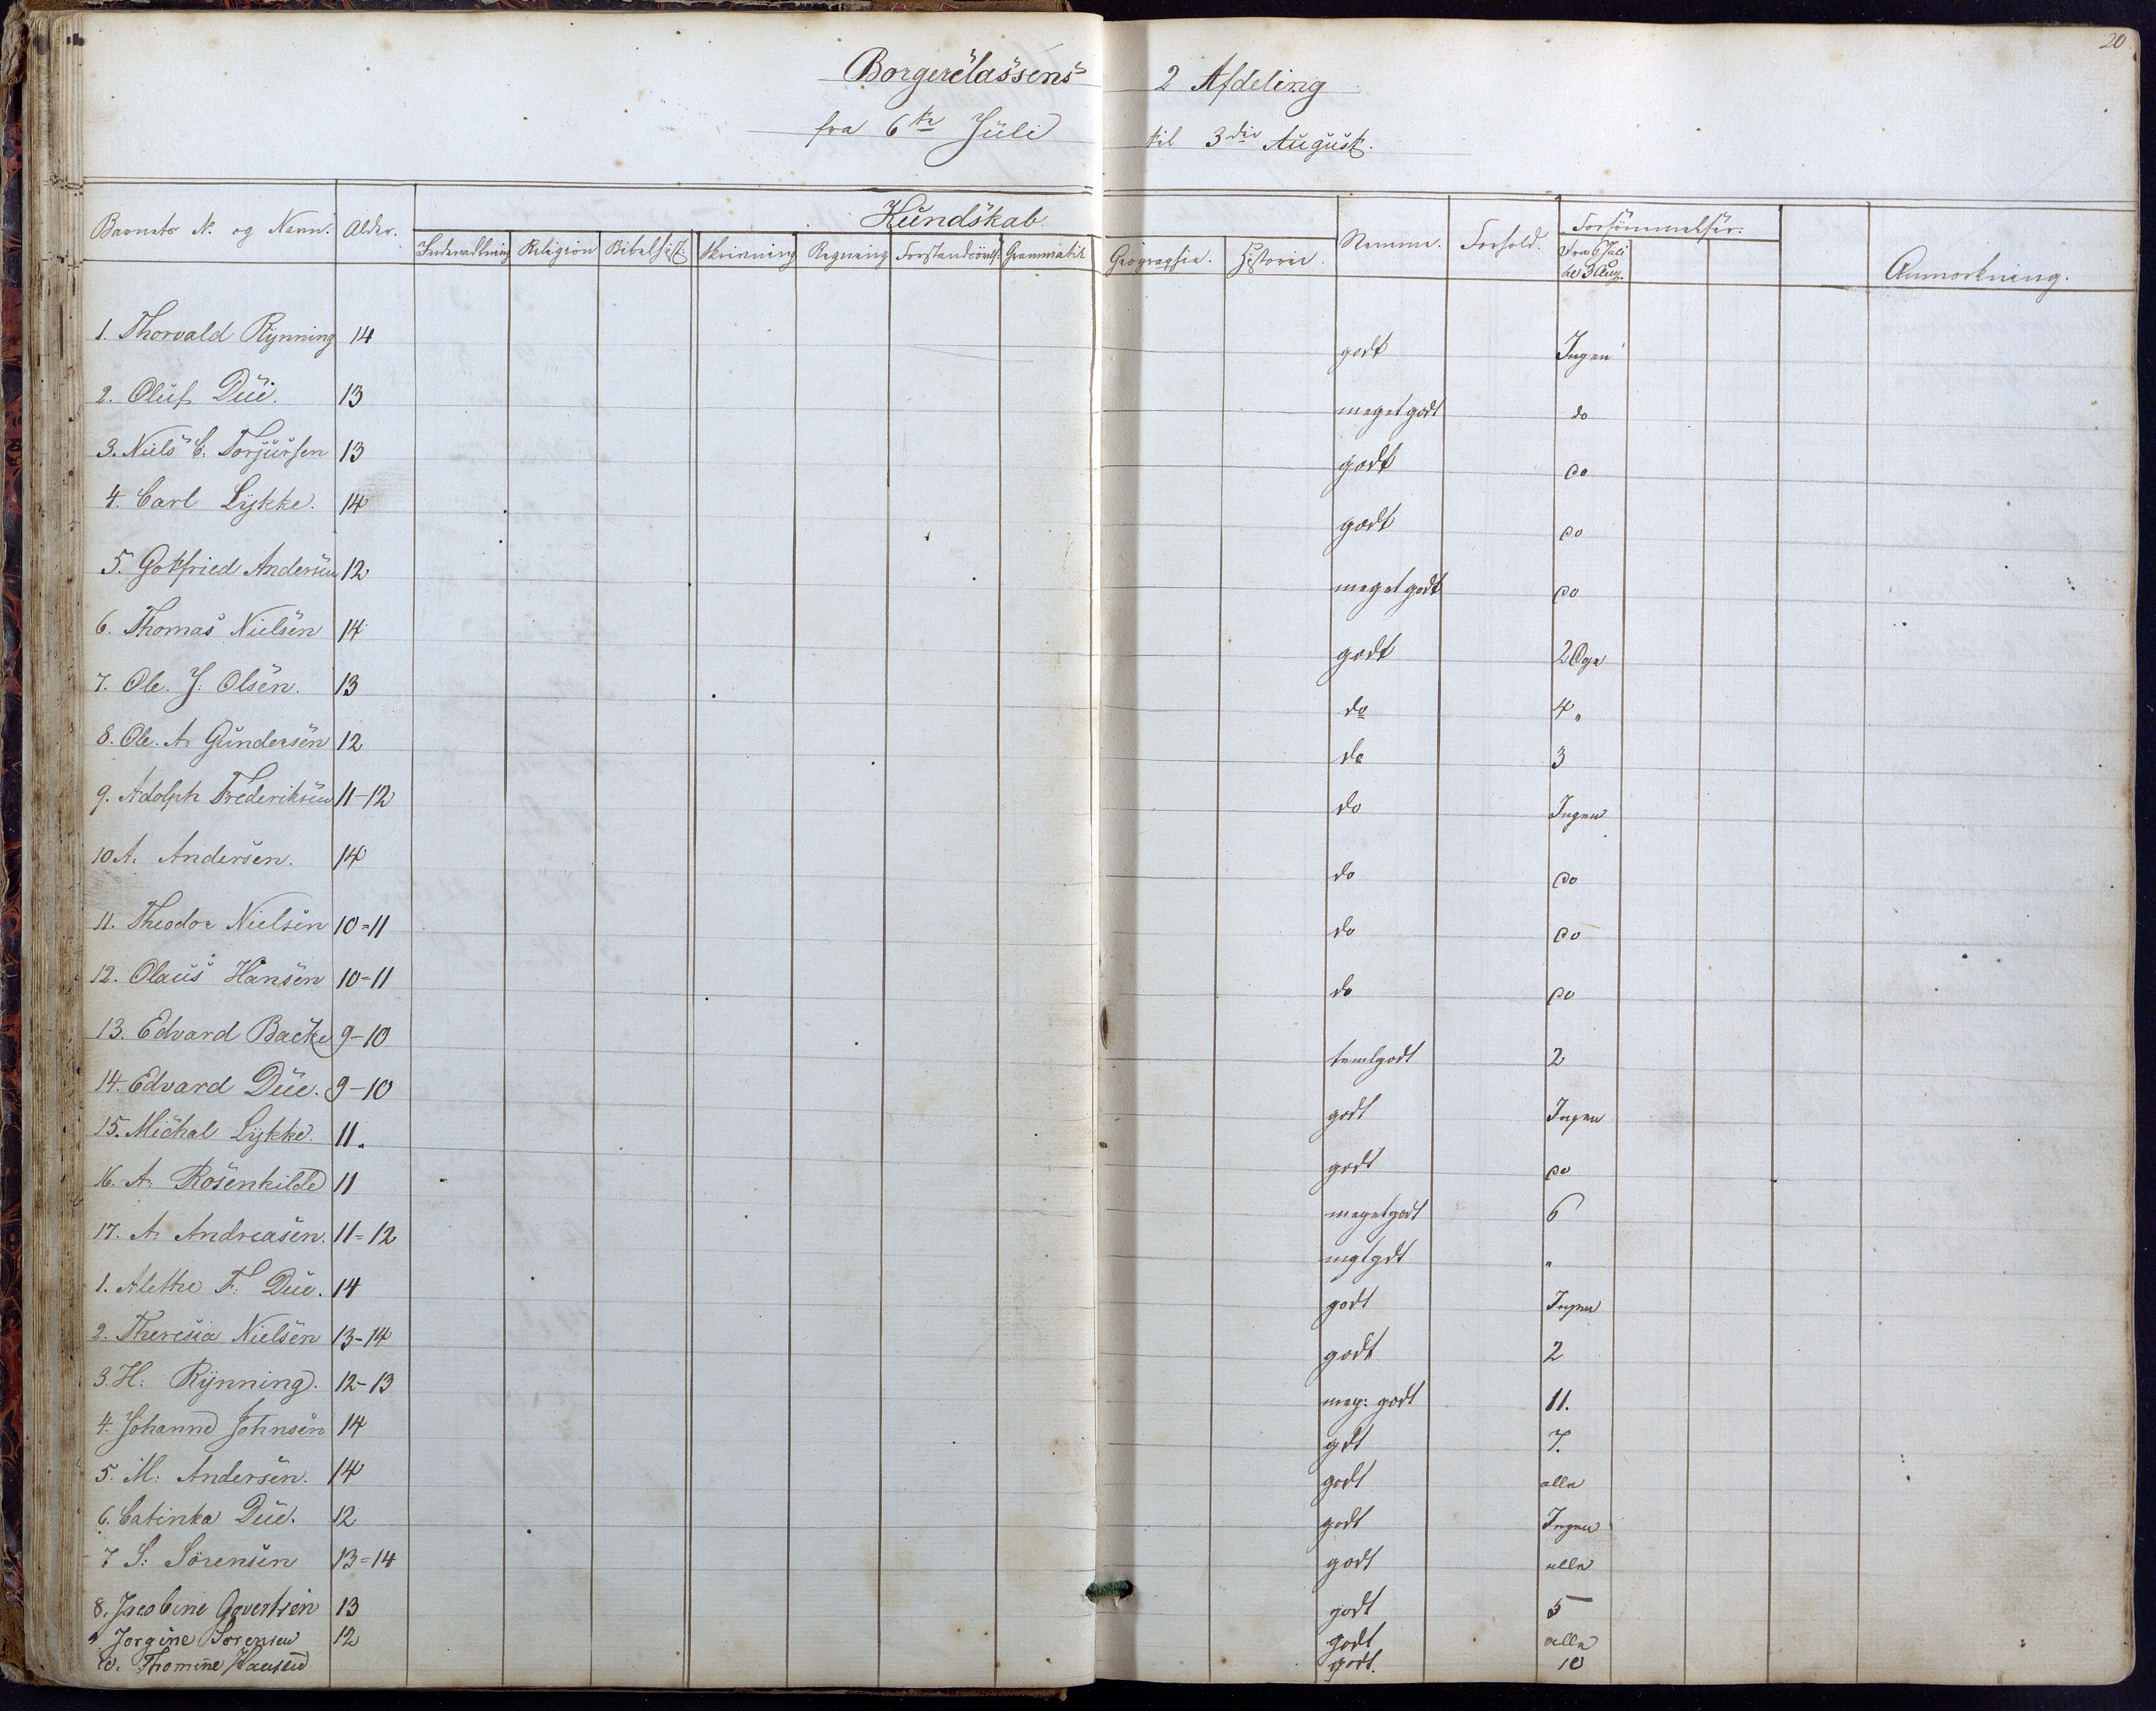 20
Borgerclassens 2 Afdeling
fra 6te Juli til 3die August.
Barnets No og Navn. Alder. Kundskab. Nemme. Forhold. Forsömmelser. Anmærkning.
Indenadlæsning Religion Bibelhist. Skrivning Regning Forstandsövels. Grammatik Geographie. Historie. Fra 6 Juli til 3 Aug.
1. Thorvald Rynning 14 godt Ingen
2. Oluf Due. 13 meget godt do
3. Niels C. Torjussen 13 godt do
4. Carl Lykke. 14 godt do
5. Gotfried Andersen 12 meget godt do
6. Thomas Nielsen 14 godt 2 Dge
7. Ole. J: Olsen. 13 do 4 "
8. Ole. A. Gundersen 12 do 3
9. Adolph Frederiksen 11-12 do Ingen
10 A. Andersen. 14 do do
11. Theodor Nielsen 10=11 do do
12. Olaus Hansen 10=11 do do
13. Edvard Backe 9-10 temlgodt 2
14. Edvard Due. 9-10 godt Ingen
15. Michal Lykke. 11. godt do
16. A. Rosenkilde 11 meget godt 6
17. A. Andreasen. 11=12 mgtgdt "
1. Alethe F. Due. 14 godt Ingen
2. Theresia Nielsen 13-14 godt 2
3. H: Rynning. 12-13 meg: godt 11.
4. Johanne Johnsen 14 gdt 7.
5. M: Andersen. 14 godt alle
6. Catinka Due. 12 godt Ingen
7 S: Sørensen 13=14 godt alle
8. Jacobine Govertsen 13 godt 5
9 Jorgine Sorensen 12 godt alle
10. Thomine Hansen godt. 10